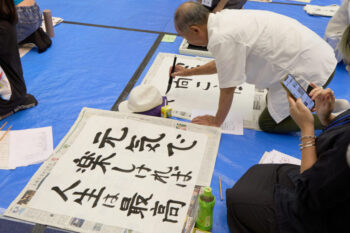 元気で
楽しければ
人生は最高